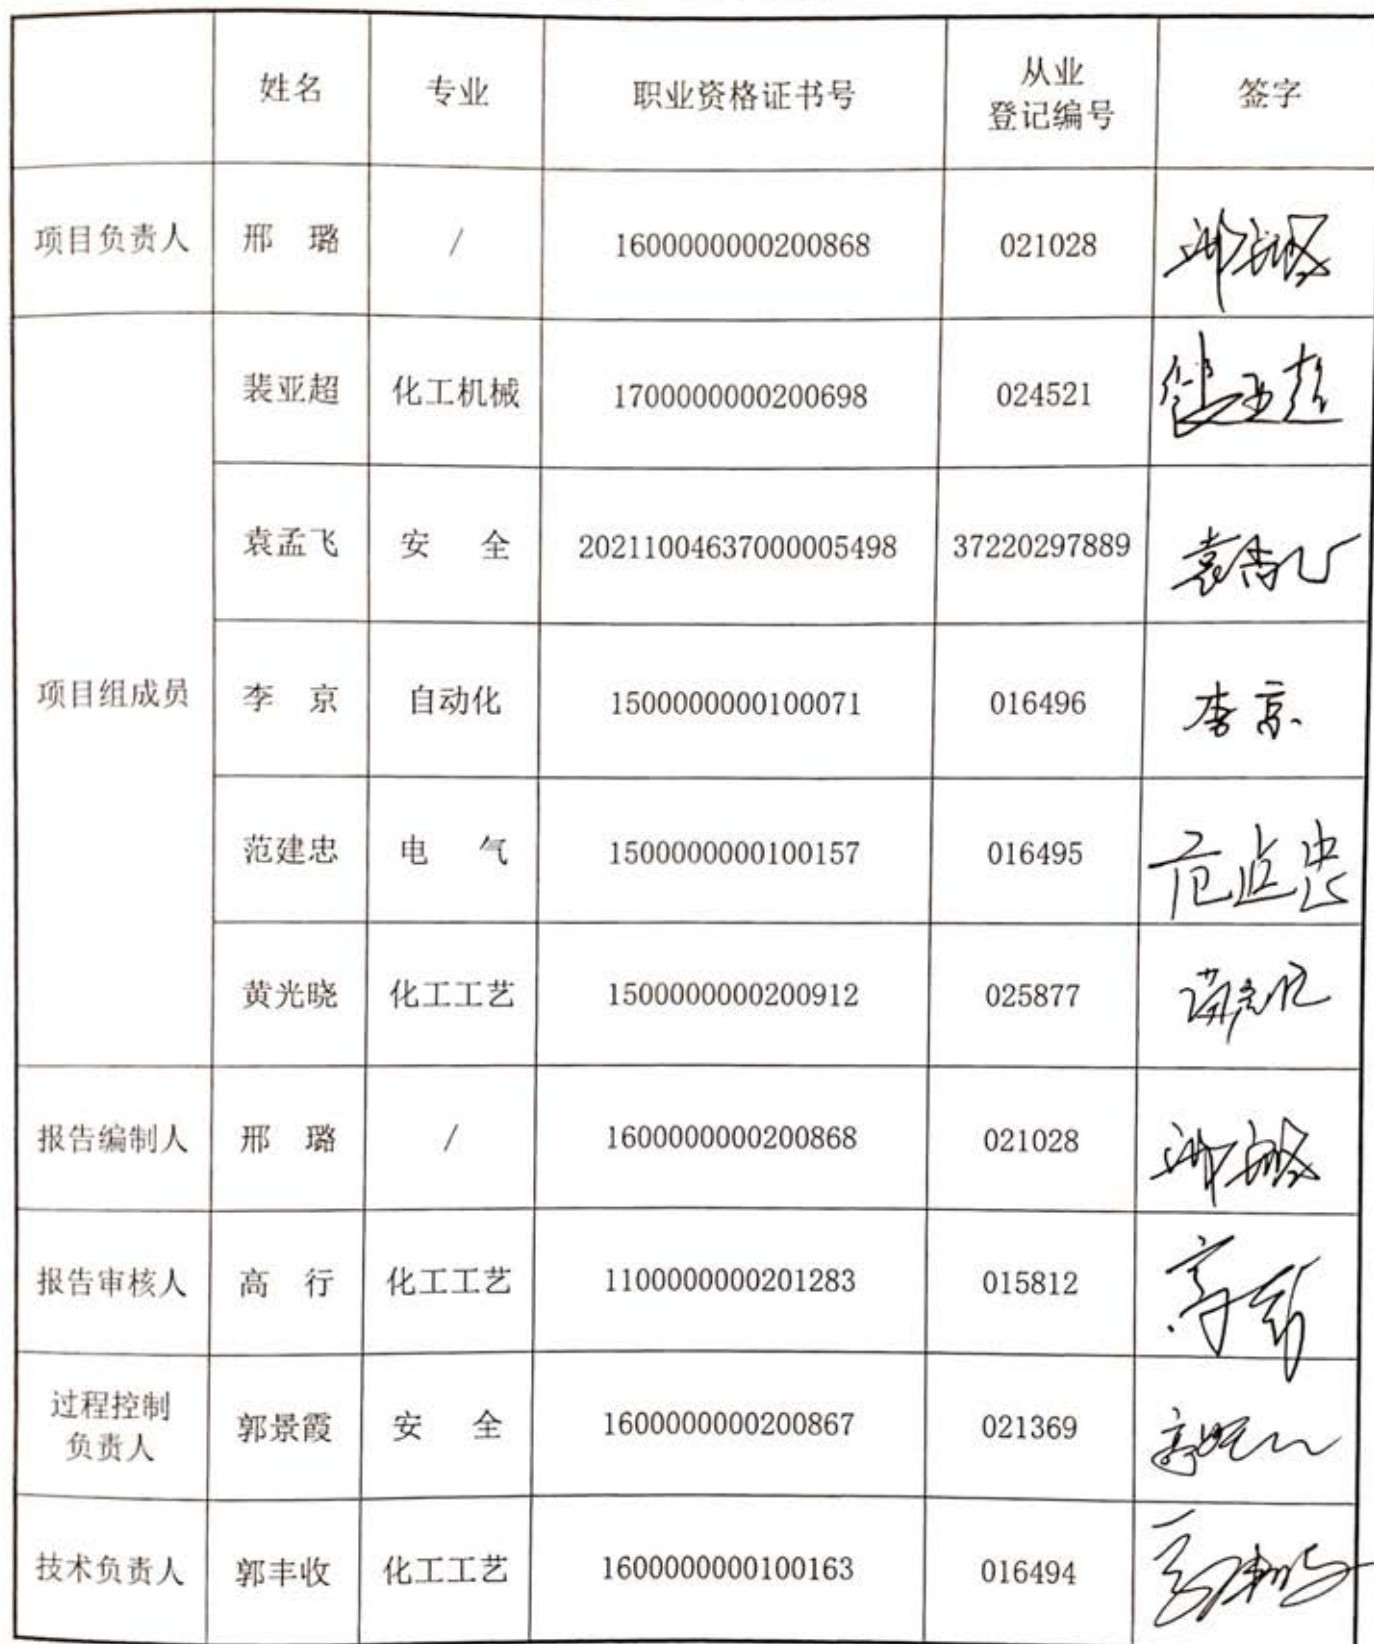 姓名 专业 职业资格证书号 从业登记编号 签字
项目负责人 邢 璐 / 1600000000200868 021028 邢璐
项目组成员 裴亚超 化工机械 1700000000200698 024521 裴亚超
袁孟飞 安 全 20211004637000005498 37220297889 袁孟飞
李 京 自动化 1500000000100071 016496 李京
范建忠 电 气 1500000000100157 016495 范建忠
黄光晓 化工工艺 1500000000200912 025877
报告编制人 邢 璐 / 1600000000200868 021028 邢璐
报告审核人 高 行 化工工艺 1100000000201283 015812 高行
过程控制负责人 郭景霞 安 全 1600000000200867 021369
技术负责人 郭丰收 化工工艺 1600000000100163 016494